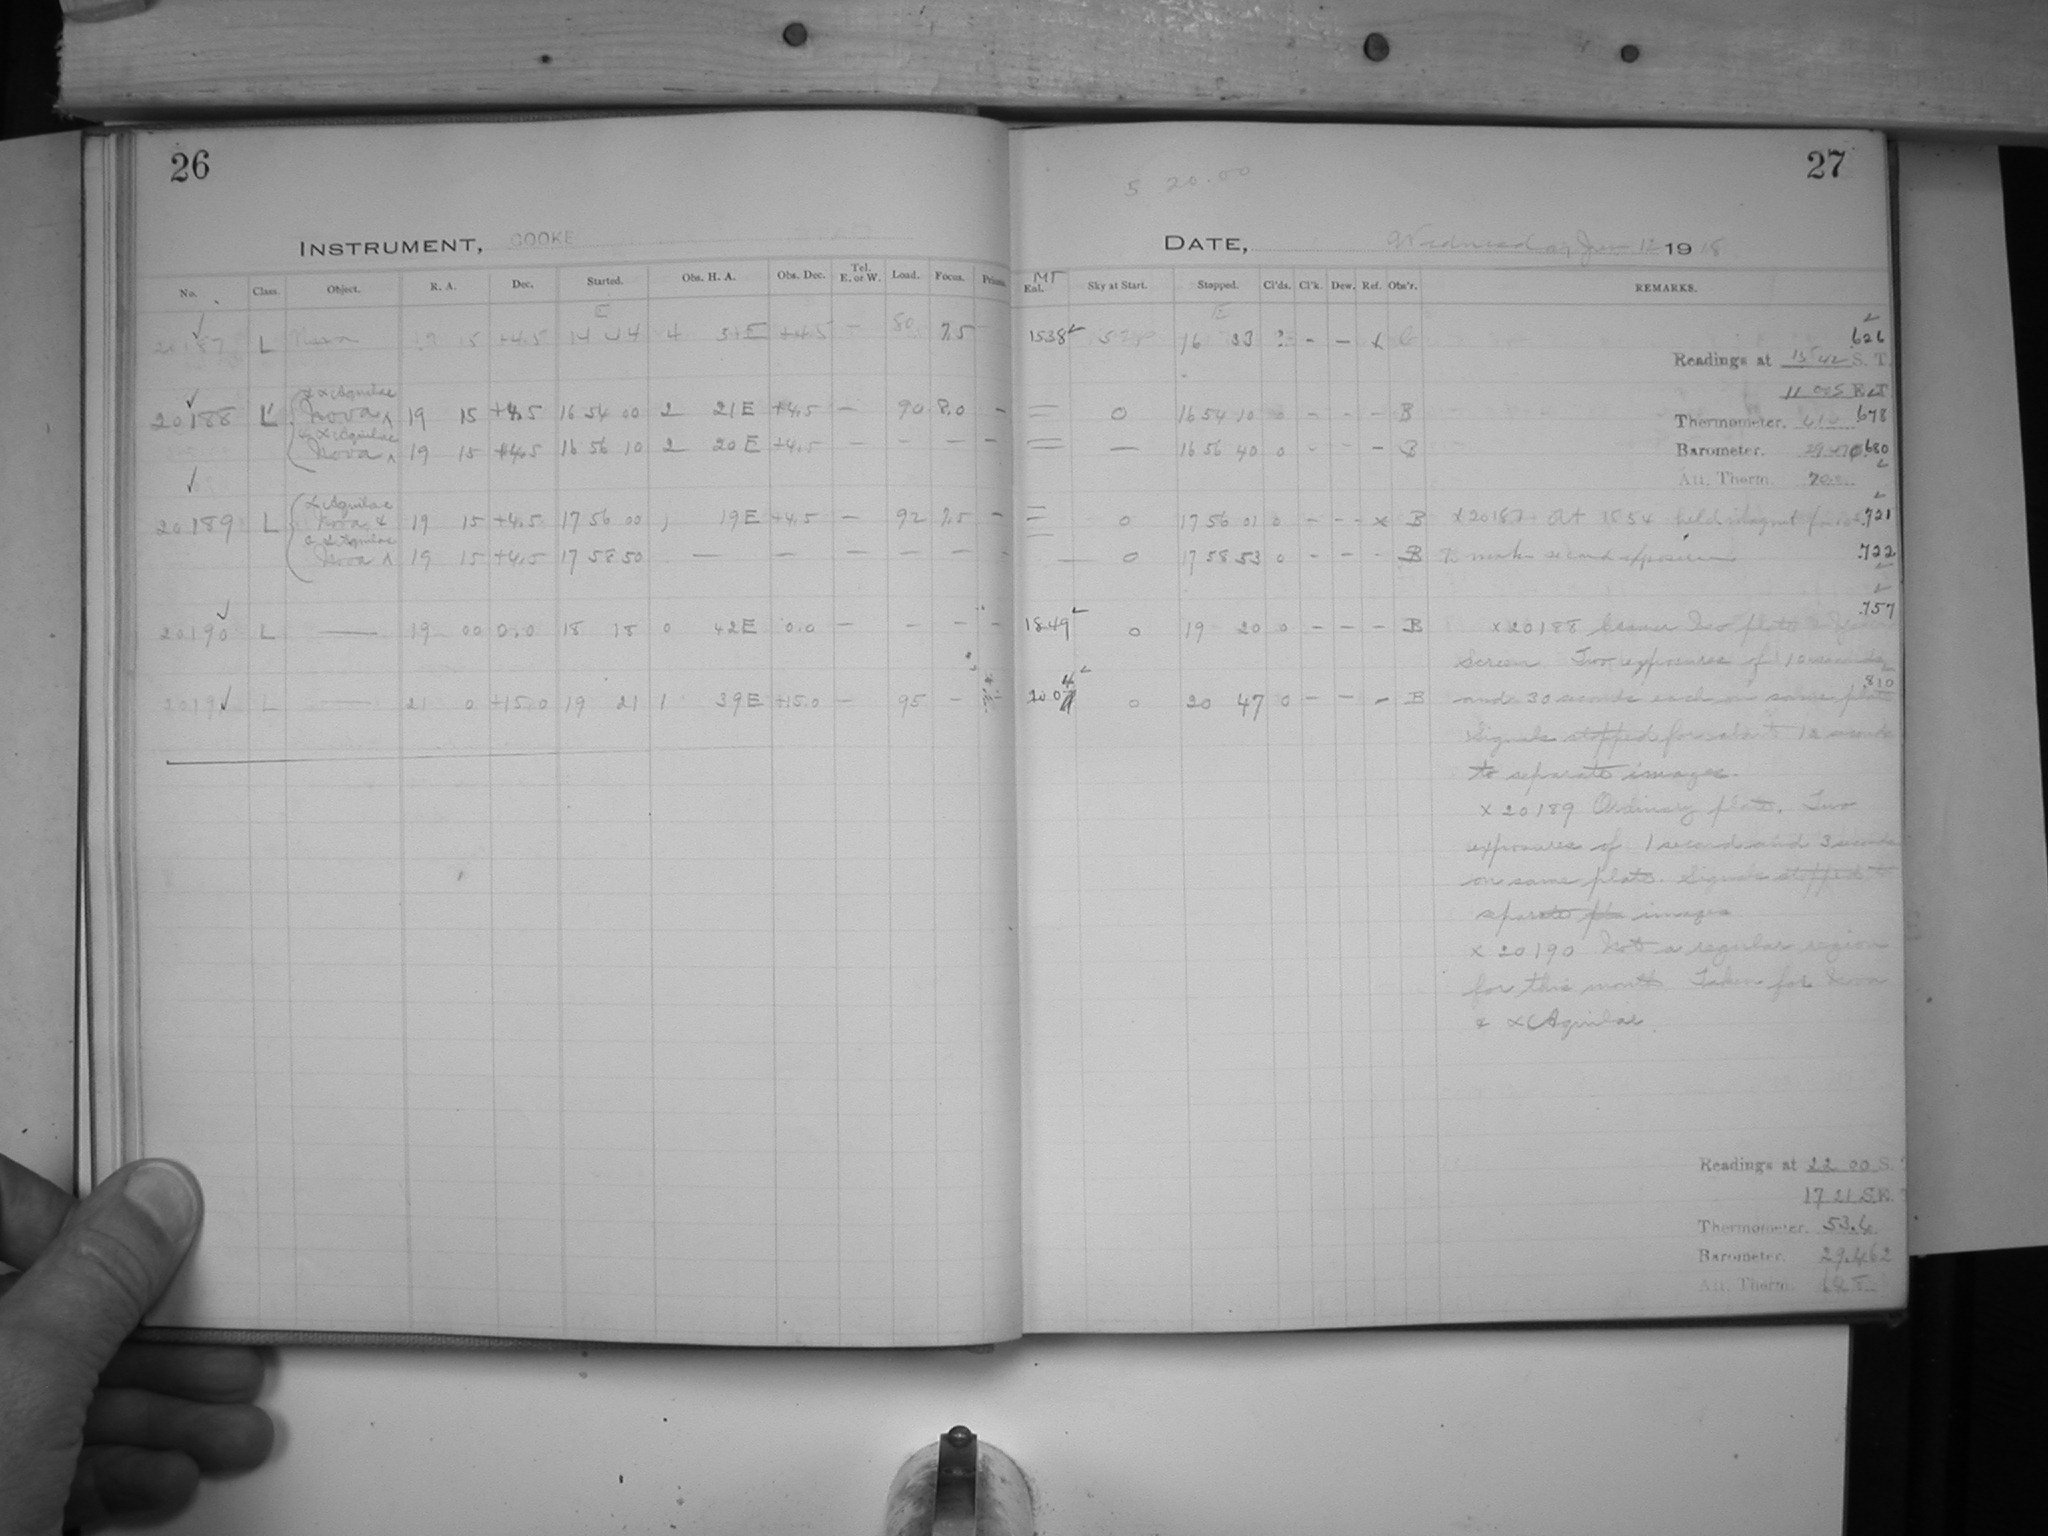 26
INSTRUMENT, COOKE
No. Class. Object. R. A. Dec. Started. Obs. H. A. Obs. Dec. Tel. E. or W. Load. Focus. Prisms.
20187 L Nova 19 15 +4.5 14 4 +4.5 — 80 7.5
E
& α Aquilae
20188 L Nova ^ 19 15 +4.5 16 54 00 2 21 E +4.5 — 90 8.0 —
& α Aquilae
Nova ^ 19 15 +4.5 16 56 10 2 20 E +4.5 — — — —
α Aquilae
20189 L Nova & 19 15 +4.5 17 56 00 1 19 E +4.5 — 92 7.5 —
& α Aquilae
Nova ^ 19 15 +4.5 17 58 50 — — — — — —
20190 L — 19 00 0.0 18 18 0 42 E 0.0 — — — —
20191 L — 21 0 +15.0 19 21 1 39 E +15.0 — 95 —
27
5 20.00
DATE, Wednesday, June 12 1918
MT
Exl. Sky at Start. Stopped. Cl'ds. Cl'k. Dew. Ref. Obs'r. REMARKS.
E
1538 16 33 ? - — x C .626
Readings at 15 42 S. T.
11 00 S E. T
= 0 16 54 10 0 - - - B Thermometer. 61.0 .678
= — 16 56 40 0 - - - B Barometer. 29.476 .680
Att. Therm. 70.
= 0 17 56 01 0 - - - x B x 20187. At 1554 held magnet for 10s .721
— 0 17 58 53 0 - - - B To make second exposure .722
1849 0 19 20 0 - - - B x 20188 Cramer Iso plate & .757
Screen. Two exposures of 10 seconds
2004 0 20 47 0 - - - B and 30 seconds each on same plate .810
Signals stopped for about 12 seconds
to separate images.
x 20189 Ordinary plate. Two
exposures of 1 second and 3 seconds
on same plate. Signals stopped to
separate pla images
x 20190 Not a regular region
for this month Taken for Nova
& α Aquilae.
Readings at 22 00 S.
17 21 S E.
Thermometer. 53.6
Barometer. 29.462
Att. Therm. 68.5